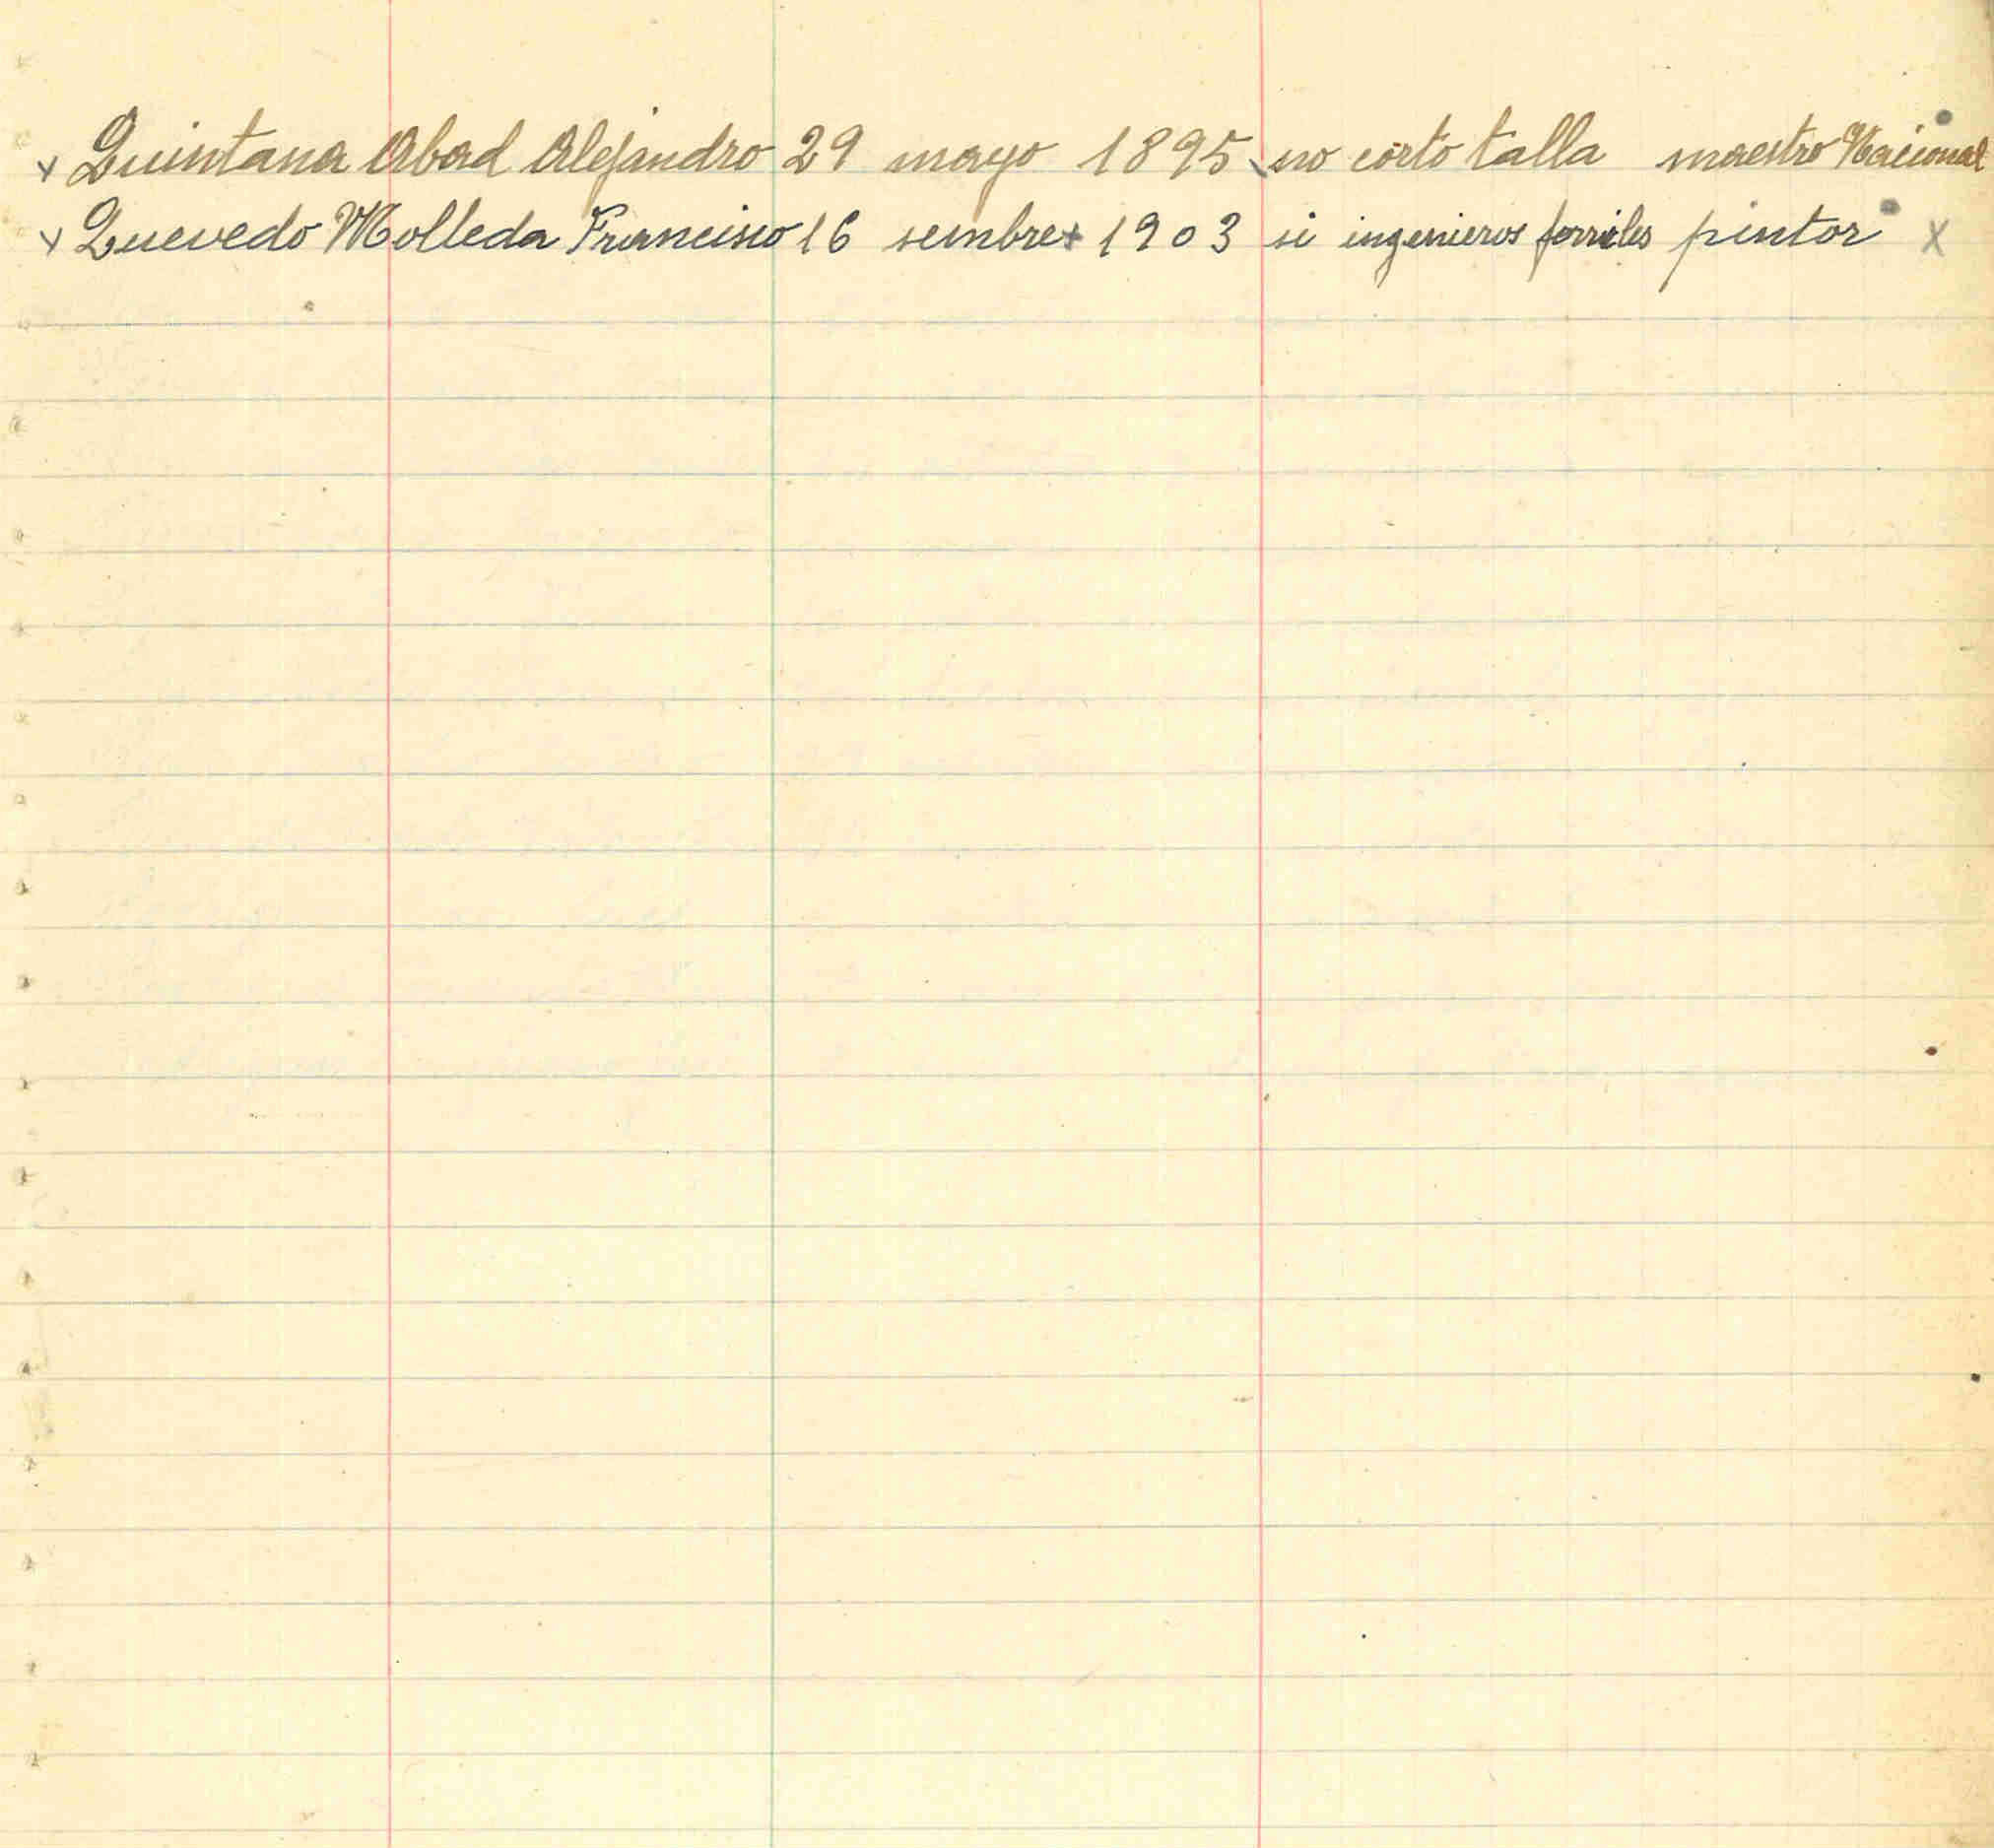 x Quintana Abad Alejandro 29 mayo 1895 no corto talla maestro Nacional
x Quevedo Molleda Francisco 16 sembre 1903 si ingenieros ferriles pintor x